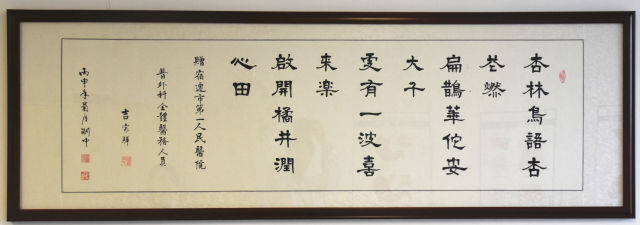 杏林鳥語杏
花燃
扁鵲華佗安
大千
更有一波喜
來樂
啟開橘井潤
心田
贈宿遷市第一人民醫院
普外科全體醫務人員
吉家祥
丙申年菊月